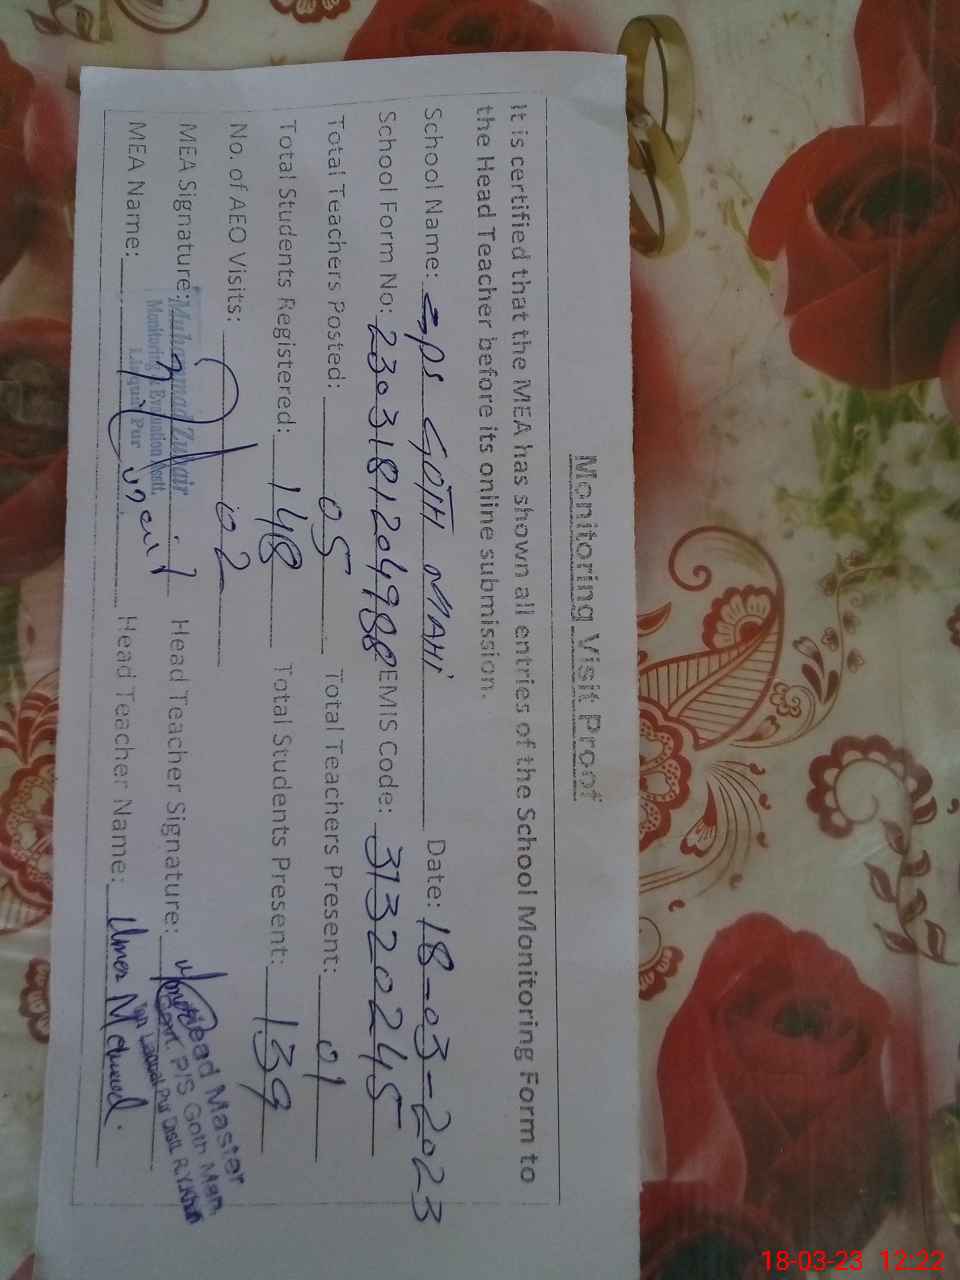 Monitoring Visit Proof
It is certified that the MEA has shown all entries of the School Monitoring Form to
the Head Teacher before its online submission.
School Name: GPS GOTH MAHI Date: 18-03-2023
School Form No: 2303181204988 EMIS Code: 31320245
Total Teachers Posted: 05 Total Teachers Present: 01
Total Students Registered: 148 Total Students Present: 139
No. of AEO Visits: 02
MEA Signature: Head Teacher Signature:
Muhammad Zubair
Monitoring & Evaluation Asstt.
Liaquat Pur
Head Master
Govt. P/S Goth Mahi
Liaquat Pur Distt. R.Y.Khan
MEA Name: Head Teacher Name: Umer
18-03-23 12:22